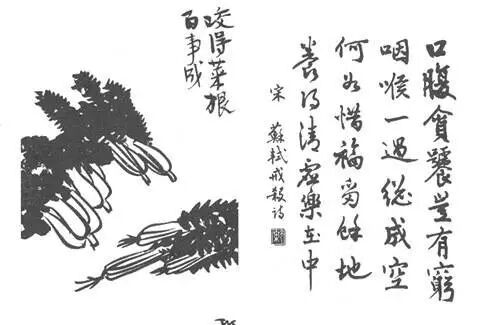 口腹貪饕豈有窮
咽喉一過總成空
何如惜福留餘地
養得清虛樂在中
宋 蘇軾戒殺詩
咬得菜根
百事成